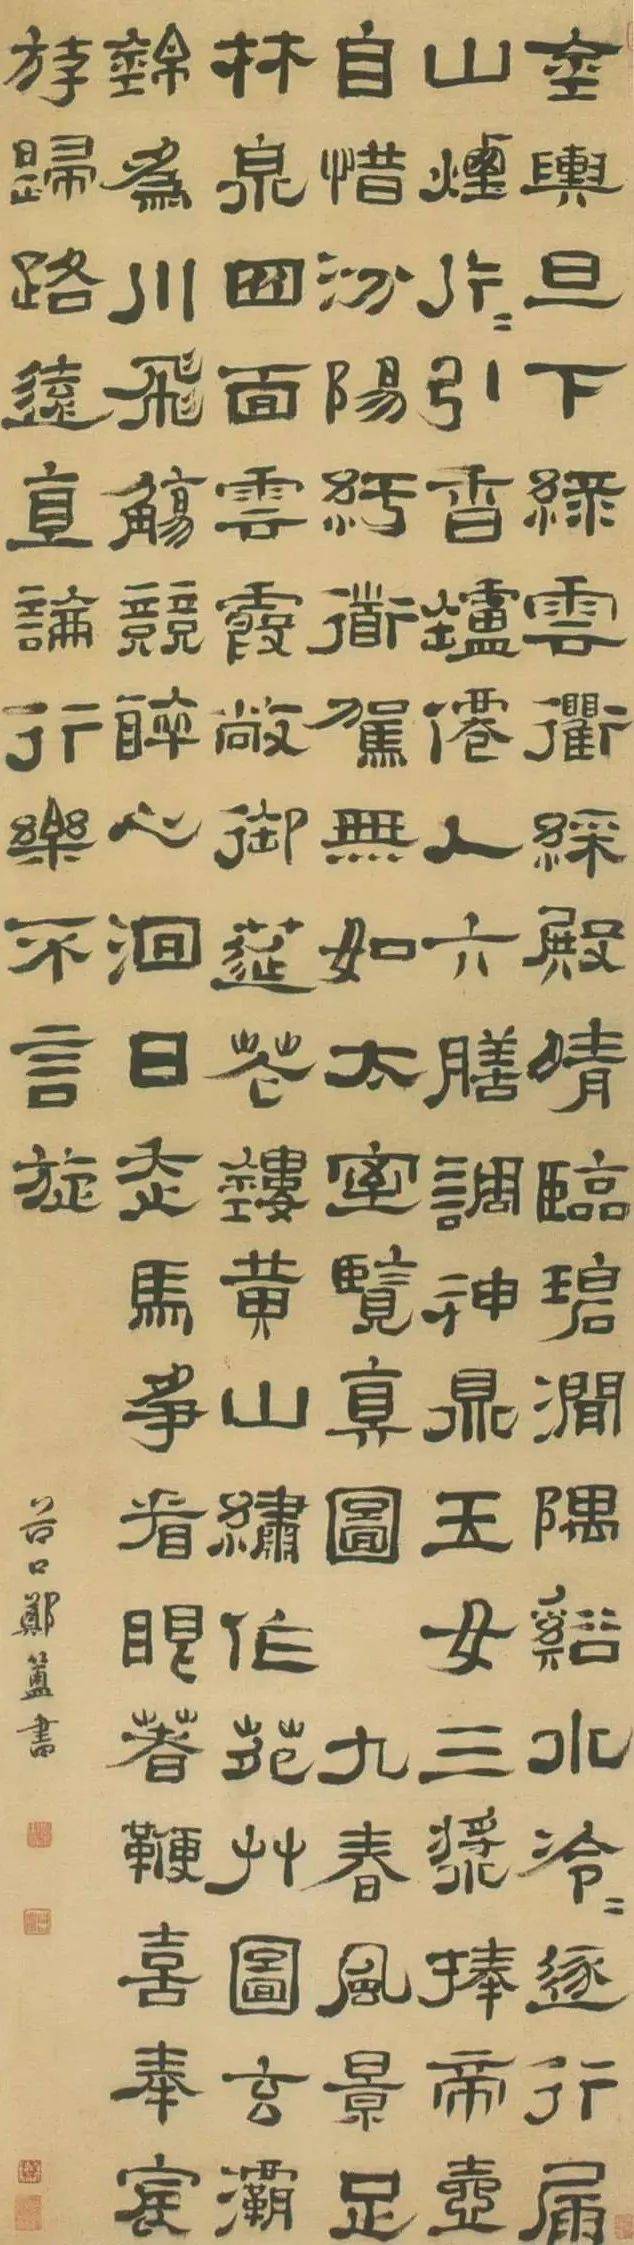 金輿旦下綠雲衢綵殿晴臨碧澗隅谿水泠〻逐行屚
山煙片〻引香鑪僊人六膳調神鼎玉女三漿捧帝壺
自惜汾陽紆衜駕無如太室覽真圖 九春風景足
林泉四面雲霞敞御莚花鏤黃山繡作苑艸圖玄灞
錦為川飛觴競醉心洄日走馬爭看眼著鞭喜奉宸
斿歸路遠直論行樂不言旋
谷口鄭簠書